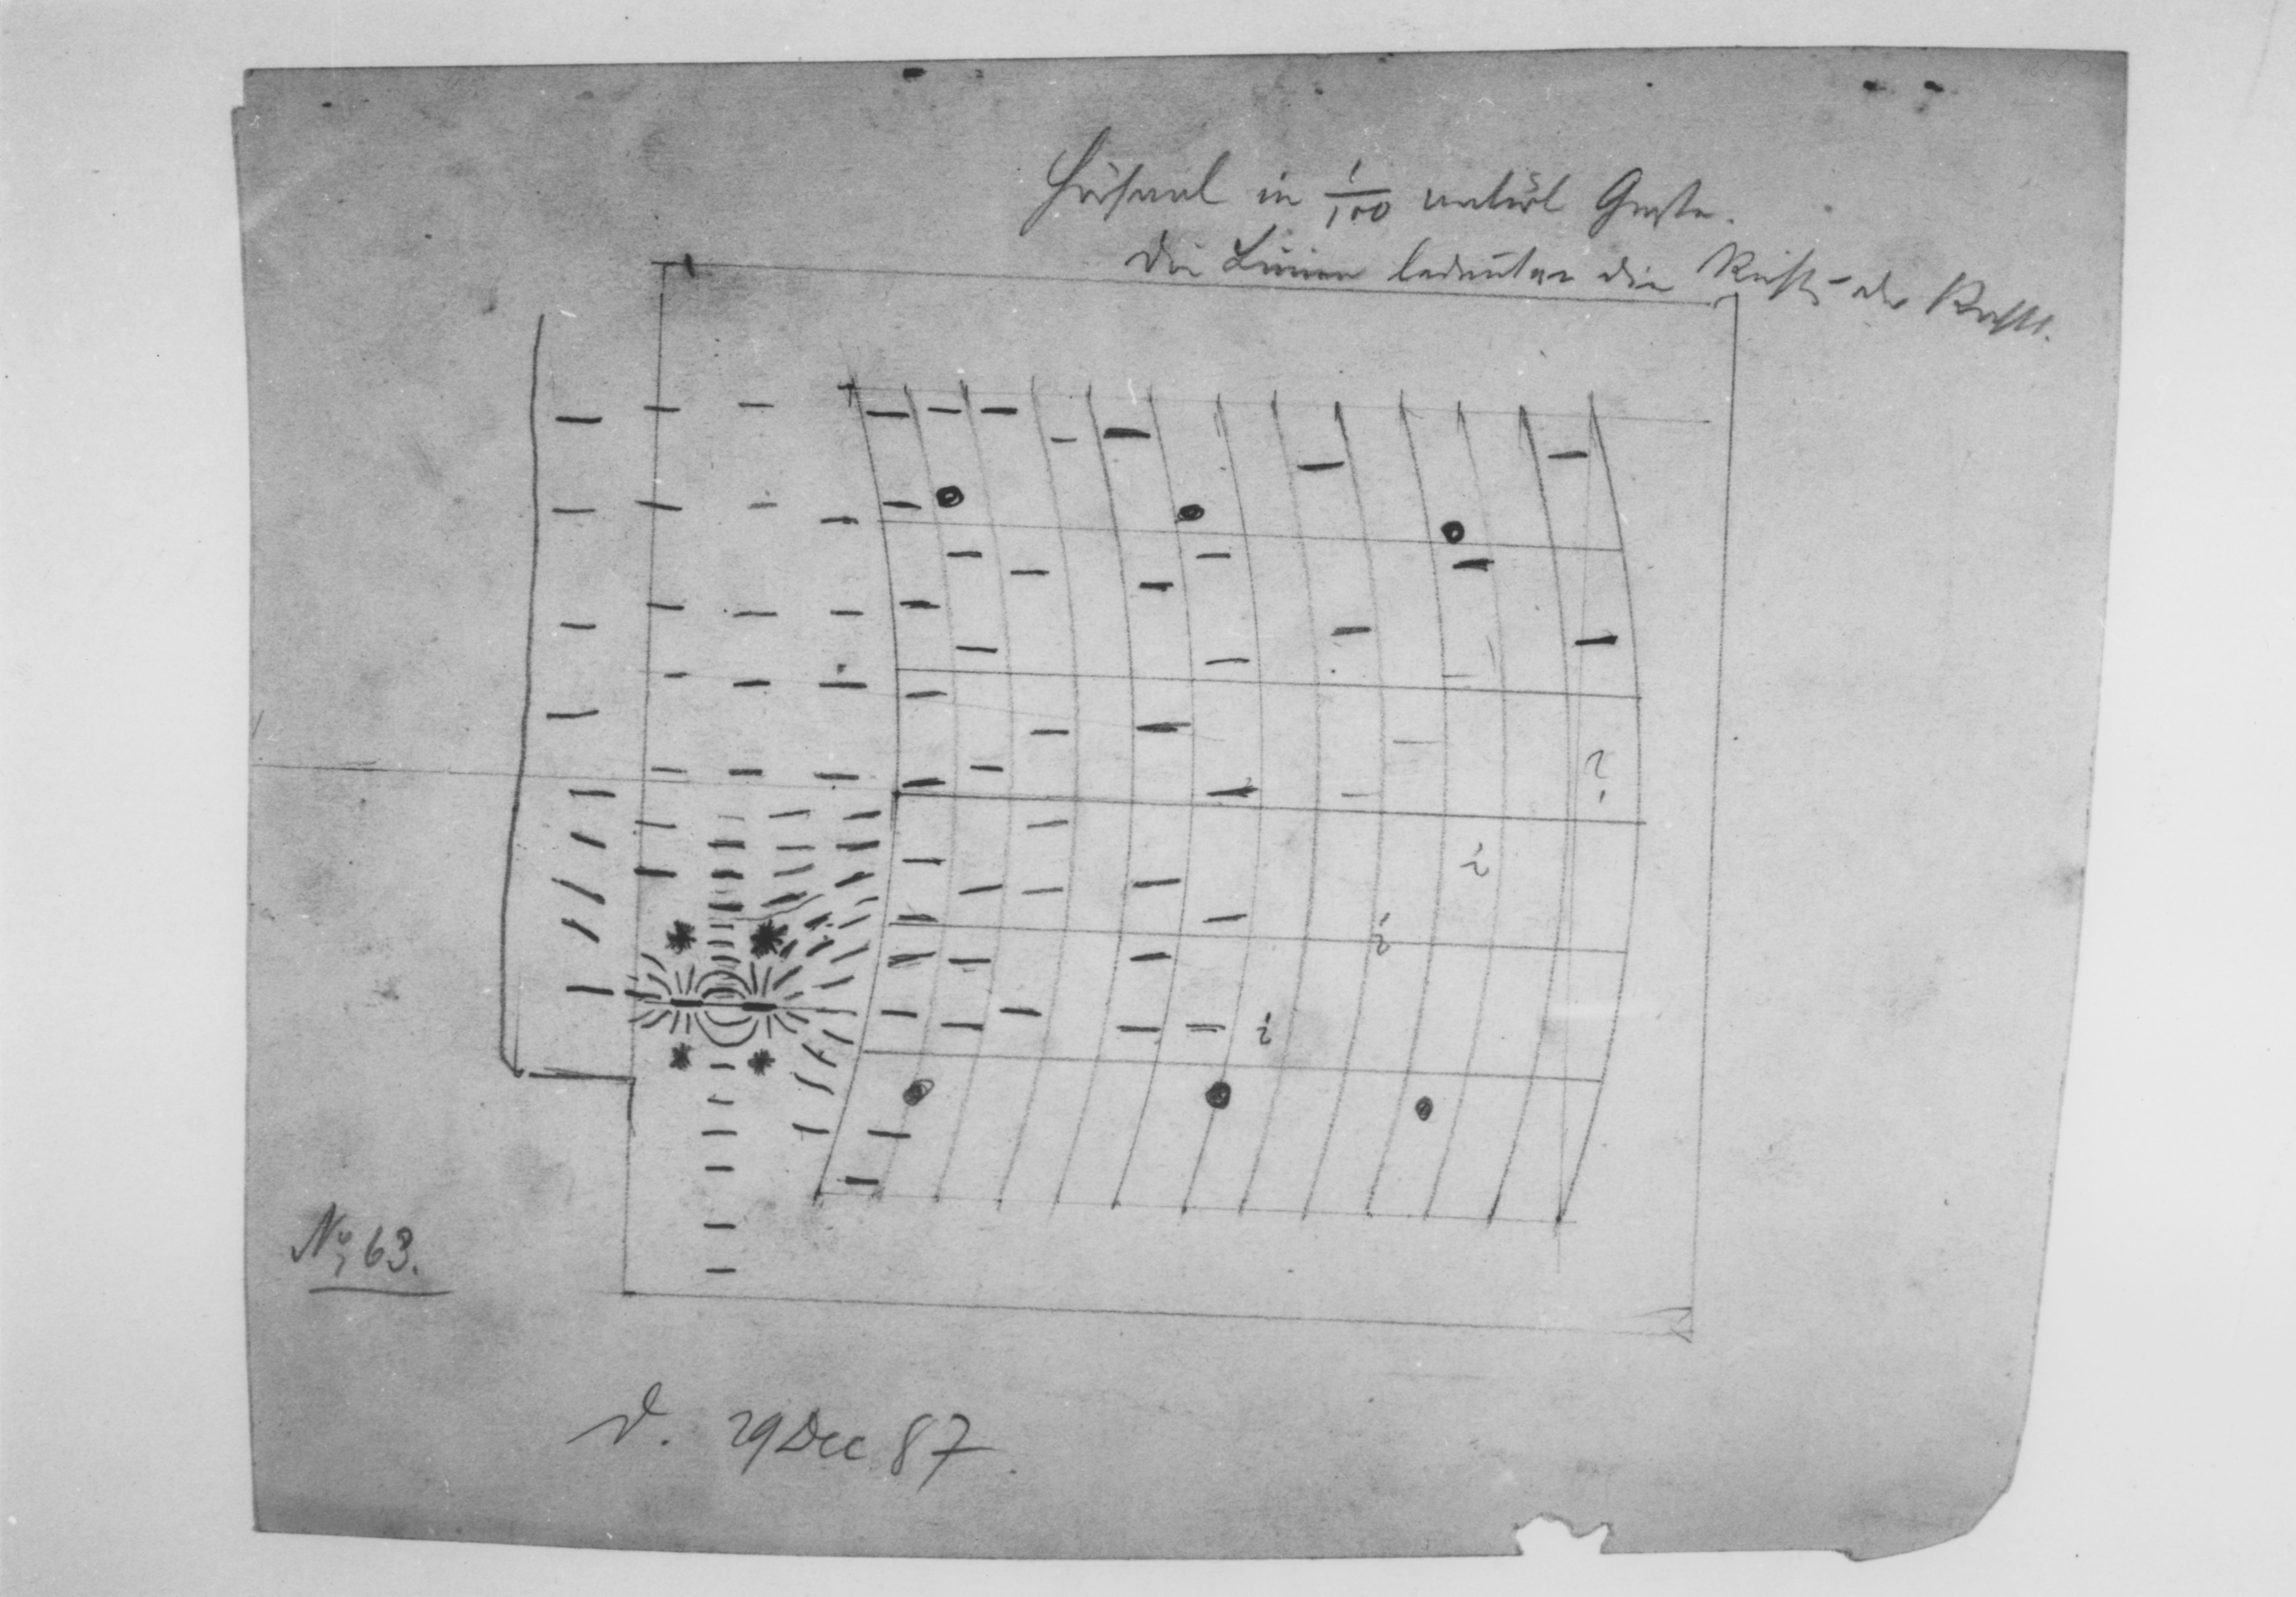 Hörsaal in 1/100 natürl Größe.
Die Linien bedeuten die Richtg der Kraft.
?
i
i
i
No 63.
d. 29 Dec 87